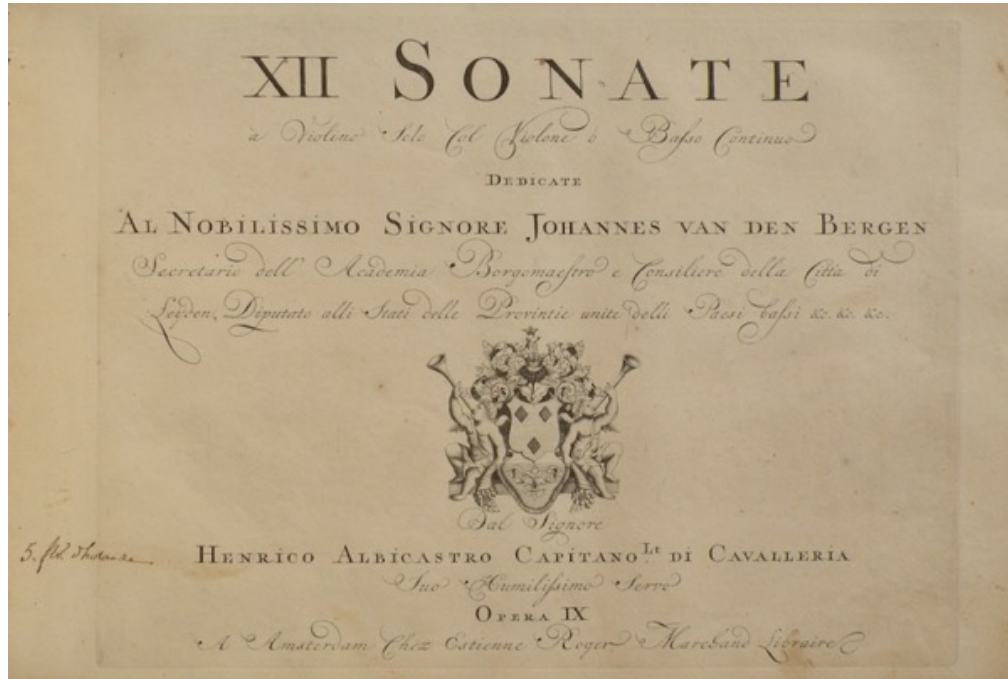 XII SONATE
a Violino Solo Col Violone ò Basso Continuo
DEDICATE
AL NOBILISSIMO SIGNORE JOHANNES VAN DEN BERGEN
Secretario dell' Academia Borgomaestro e Consiliere della Citta di
Leyden, Diputato alli Stati delle Provintie unite delli Paesi bassi &c. &c. &c.
Dal Signore
HENRICO ALBICASTRO CAPITANO Lt. DI CAVALLERIA
Suo Humilissimo Servo
OPERA IX
A Amsterdam Chez Estienne Roger Marchand Libraire
5.